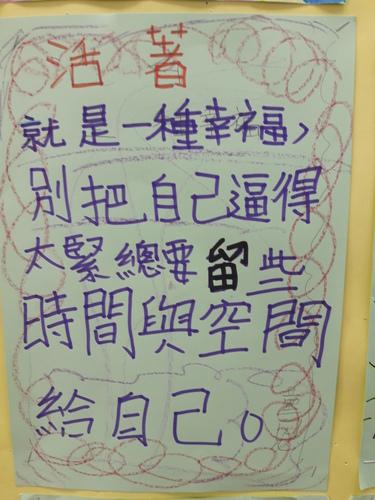 活著
就是一種幸福,
別把自己逼得
太緊總要留些
時間與空間
給自己。